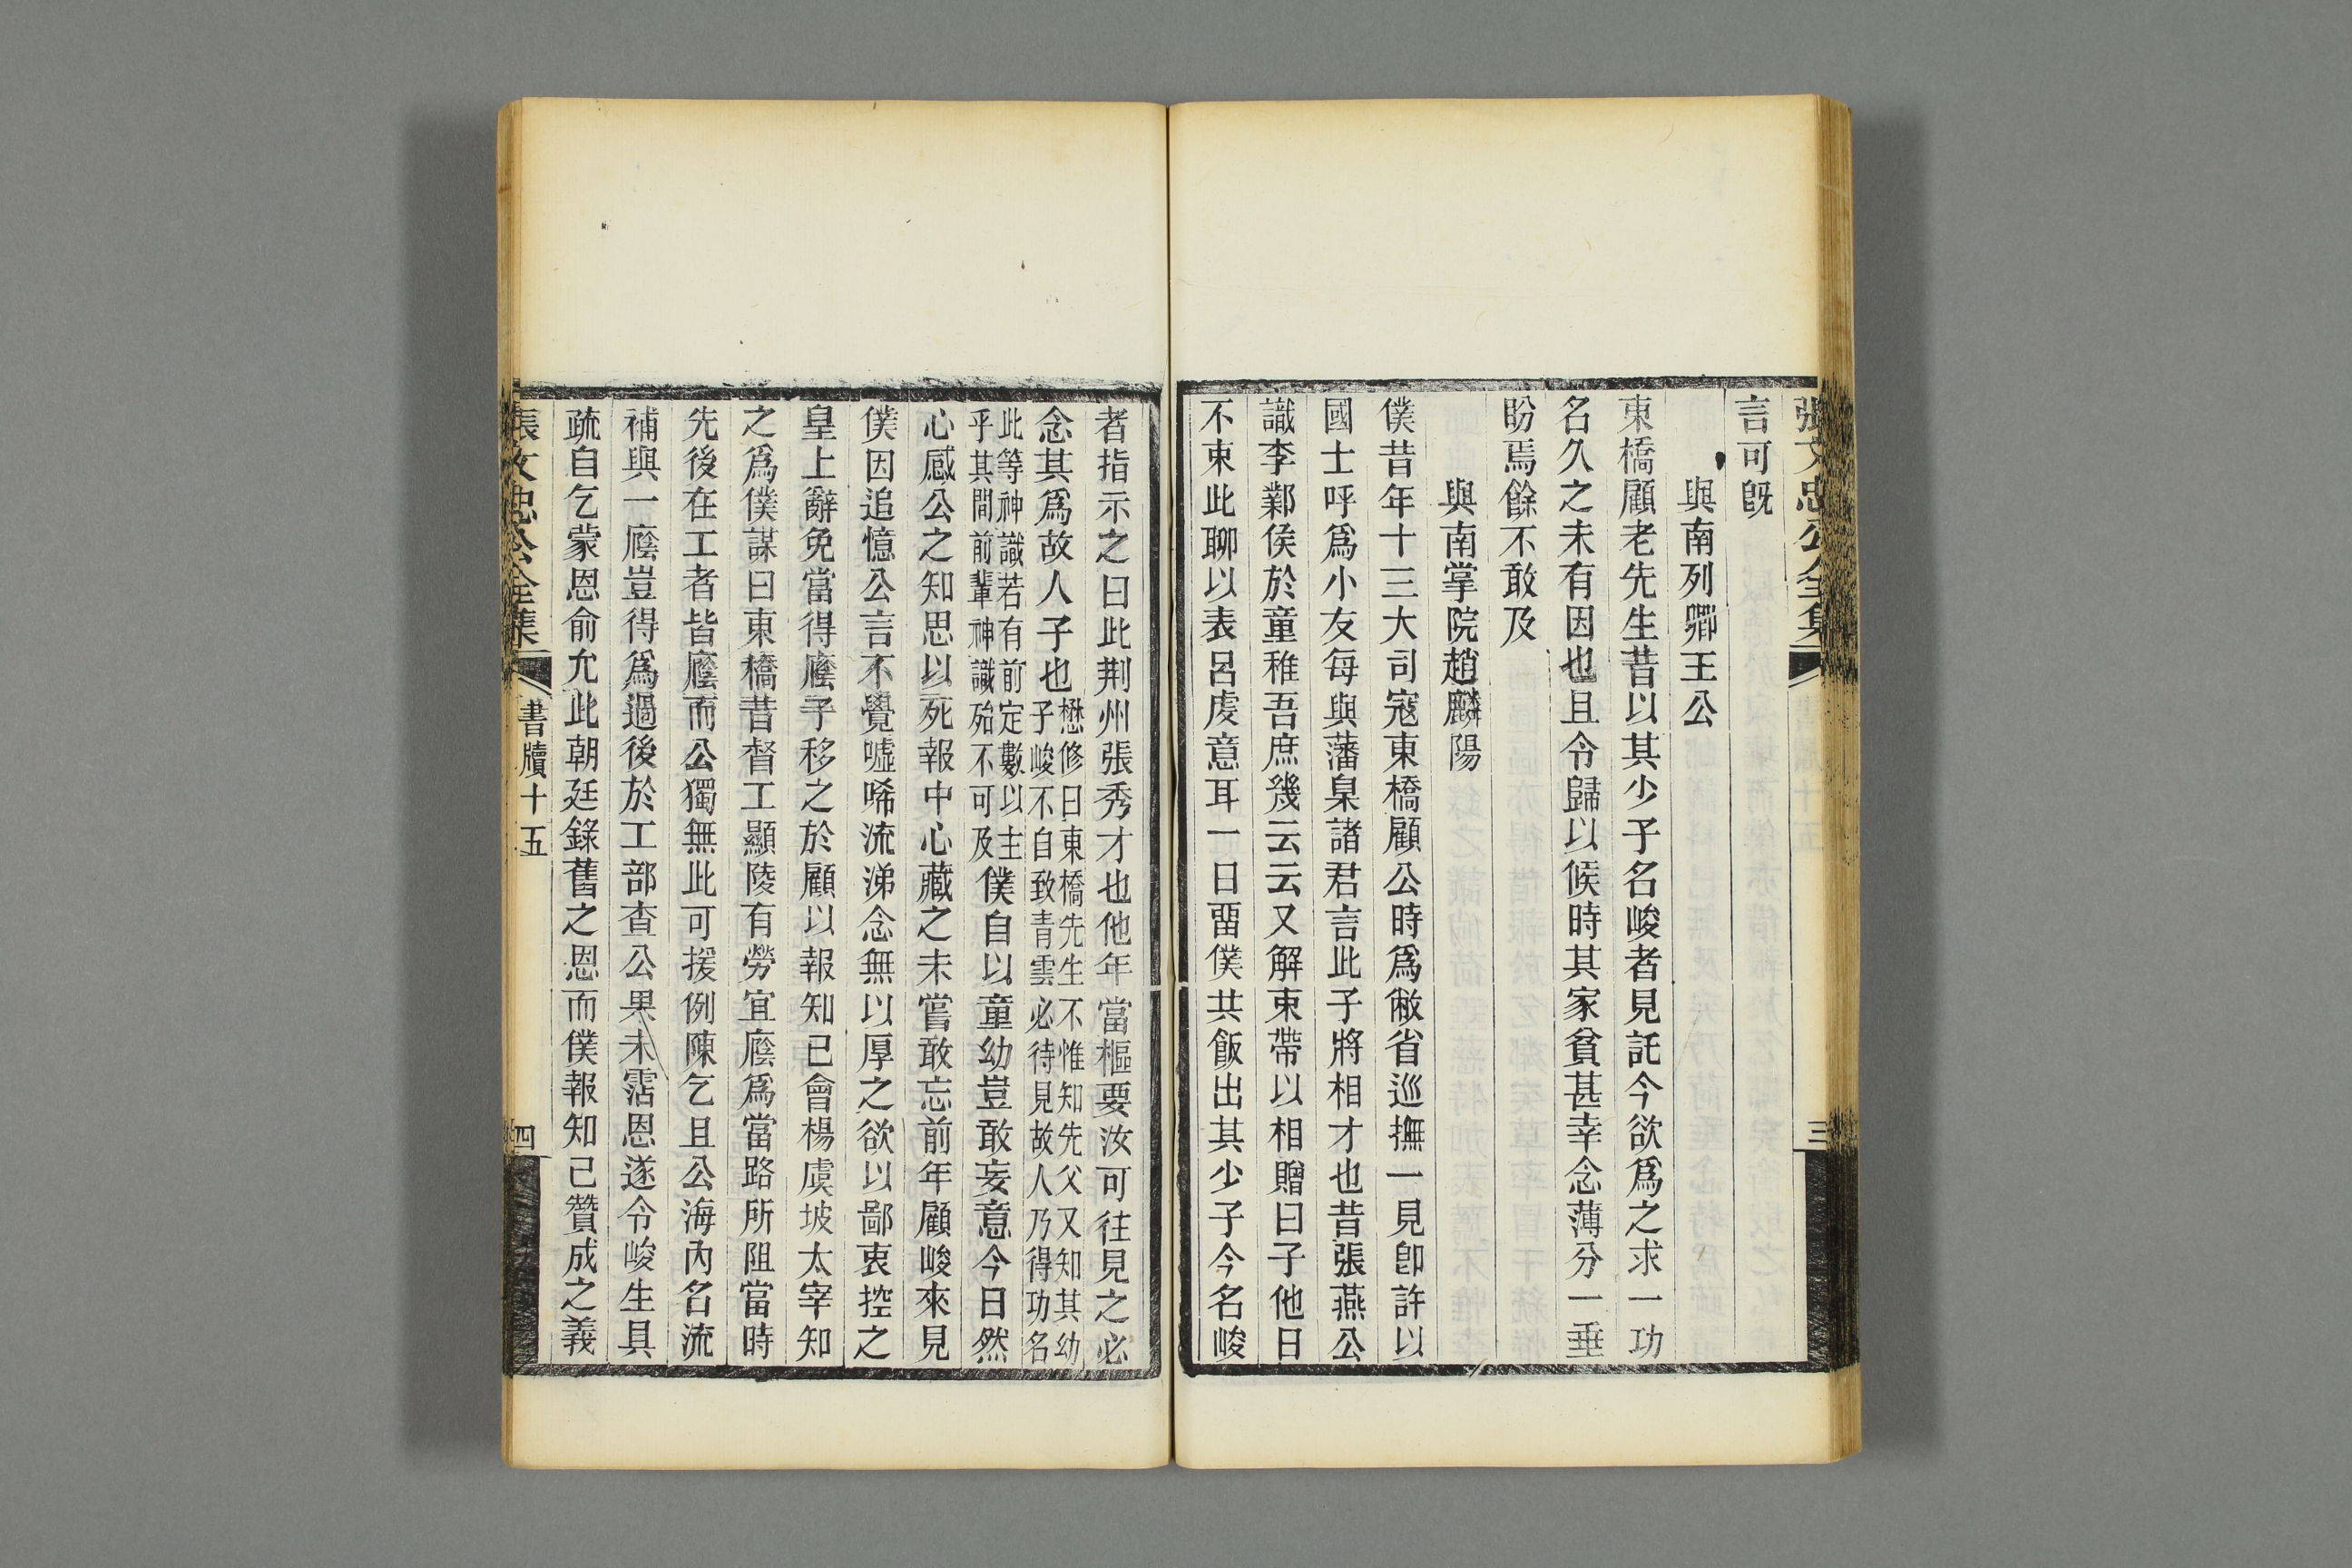 張文忠公全集
三
言可旣
與南列卿王公
東橋顧老先生昔以其少子名峻者見託今欲爲之求一功
名久之未有因也且令歸以候時其家貧甚幸念薄分一垂
盼焉餘不敢及
與南掌院趙麟陽
僕昔年十三大司寇東橋顧公時爲敝省巡撫一見卽許以
國士呼爲小友每與藩臬諸君言此子將相才也昔張燕公
識李鄴侯於童稚吾庶幾云云又解束帶以相贈曰子他日
不束此聊以表呂虔意耳一日畱僕共飯出其少子今名峻
者指示之曰此荆州張秀才也他年當樞要汝可往見之必
念其爲故人子也懋修曰東橋先生不惟知先父又知其幼
子峻不自致青雲必待見故人乃得功名
此等神識若有前定數以主
乎其間前輩神識殆不可及僕自以童幼豈敢妄意今日然
心感公之知思以死報中心藏之未嘗敢忘前年顧峻來見
僕因追憶公言不覺噓唏流涕念無以厚之欲以鄙衷控之
皇上辭免當得廕子移之於顧以報知已會楊虞坡太宰知
之爲僕謀曰東橋昔督工顯陵有勞宜廕爲當路所阻當時
先後在工者皆廕而公獨無此可援例陳乞且公海內名流
補與一廕豈得爲過後於工部查公果未霑恩遂令峻生具
疏自乞蒙恩俞允此朝廷錄舊之恩而僕報知己贊成之義
張文忠公全集
書牘十五
四